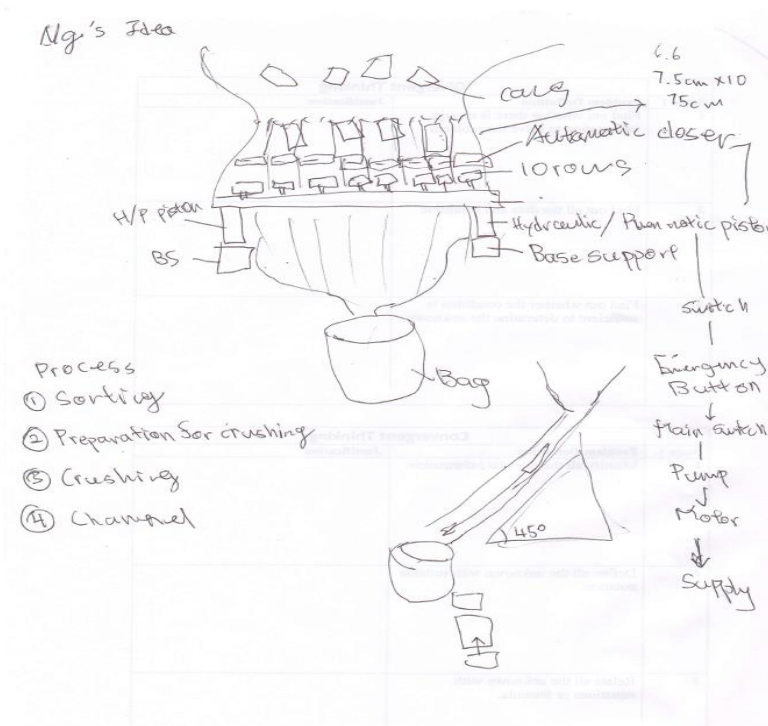 Ng's Idea
6.6
7.5cm x10
75cm
cans
Automatic closer
10 rows
H/P piston
Hydraulic / Pneumatic piston
BS
Base support
Switch
Bag
Emergency
Button
Main switch
Pump
Motor
Supply
Process
① Sorting
② Preparation for crushing
③ Crushing
④ Channel
45°
Convergent Thinking